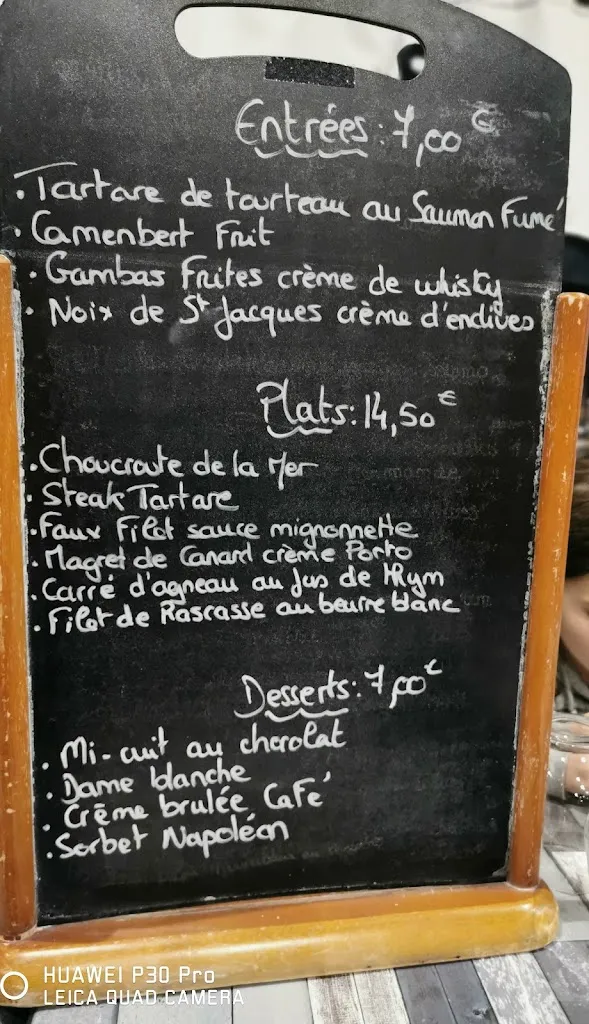 Entrées : 7,00 €
. Tartare de tourteau au Saumon Fumé
. Camenbert Frit
. Gambas Frites crème de whisky
. Noix de St Jacques crème d'endives
Plats : 14,50 €
. Choucroute de la Mer
. Steak Tartare
. Faux Filet sauce mignonnette
. Magret de Canard crème Porto
. Carré d'agneau au Jus de thym
. Filet de Rascasse au beurre blanc
Desserts : 7,00 €
. Mi-cuit au chocolat
. Dame blanche
. Crème brulée Café
. Sorbet Napoléon
HUAWEI P30 Pro
LEICA QUAD CAMERA